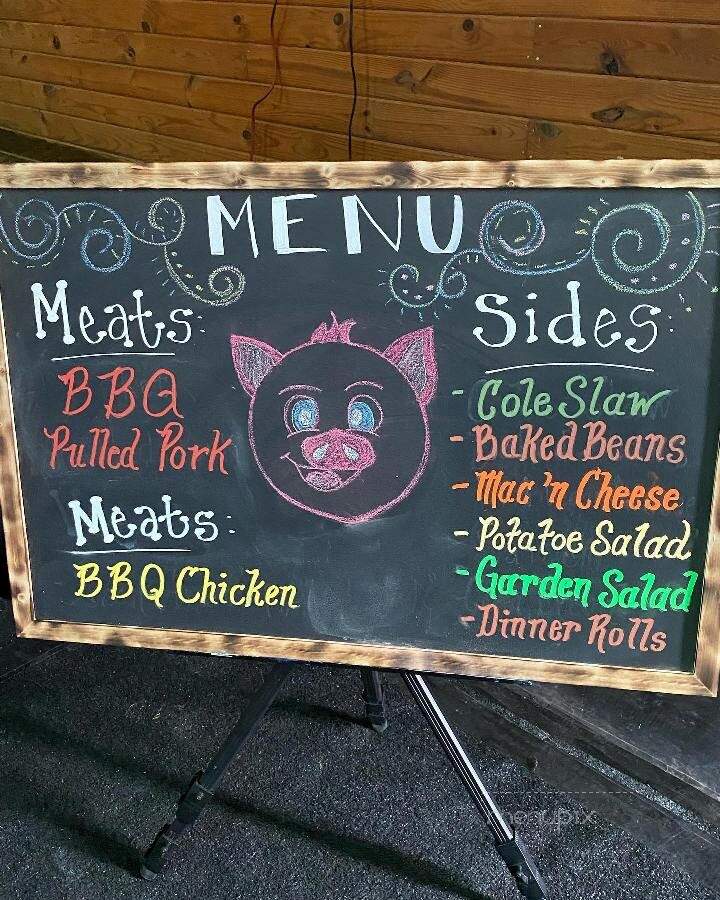 MENU
Meats:
BBQ
Pulled Pork
Meats:
BBQ Chicken
Sides:
- Cole Slaw
- Baked Beans
- Mac 'n Cheese
- Potatoe Salad
- Garden Salad
- Dinner Rolls
menupix